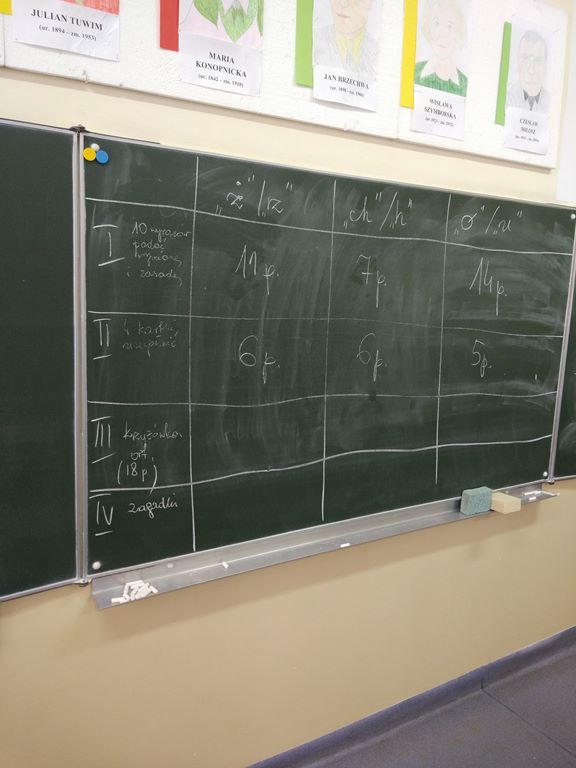 JULIAN TUWIM
(ur. 1894 - zm. 1953)
MARIA
KONOPNICKA
(ur. 1842 - zm. 1910)
JAN BRZECHWA
(ur. 1898 - zm. 1966)
WISŁAWA
SZYMBORSKA
(ur. 1923 - zm. 2012)
CZESŁAW
MIŁOSZ
"ż"/"z" "ch"/"h" "o"/"u"
I 10 wyrazów
podać
i zasadę
11 p. 7 p. 14 p.
II 4 kartki
uzupełnić
6 p. 6 p. 5 p.
III Krzyżówka
ort.
(18 p.)
IV Zagadki